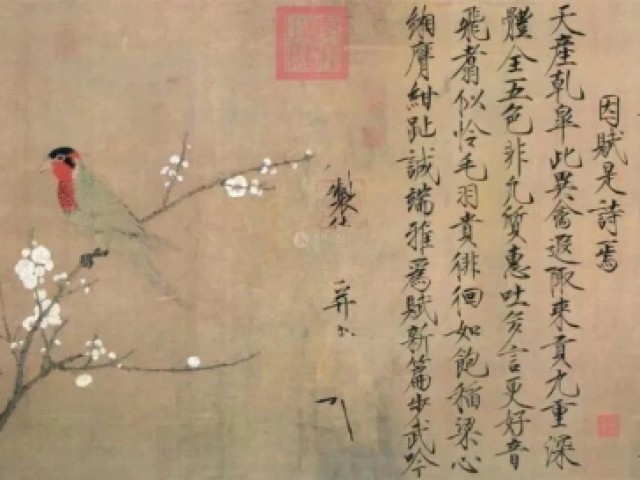 因賦是詩焉
天產乾皋此異禽遐陬來貢九重深
體全五色非凡質惠吐多言更好音
飛翥似怜毛羽貴徘徊如飽稻粱心
緗膺紺趾誠端雅爲賦新篇步武吟